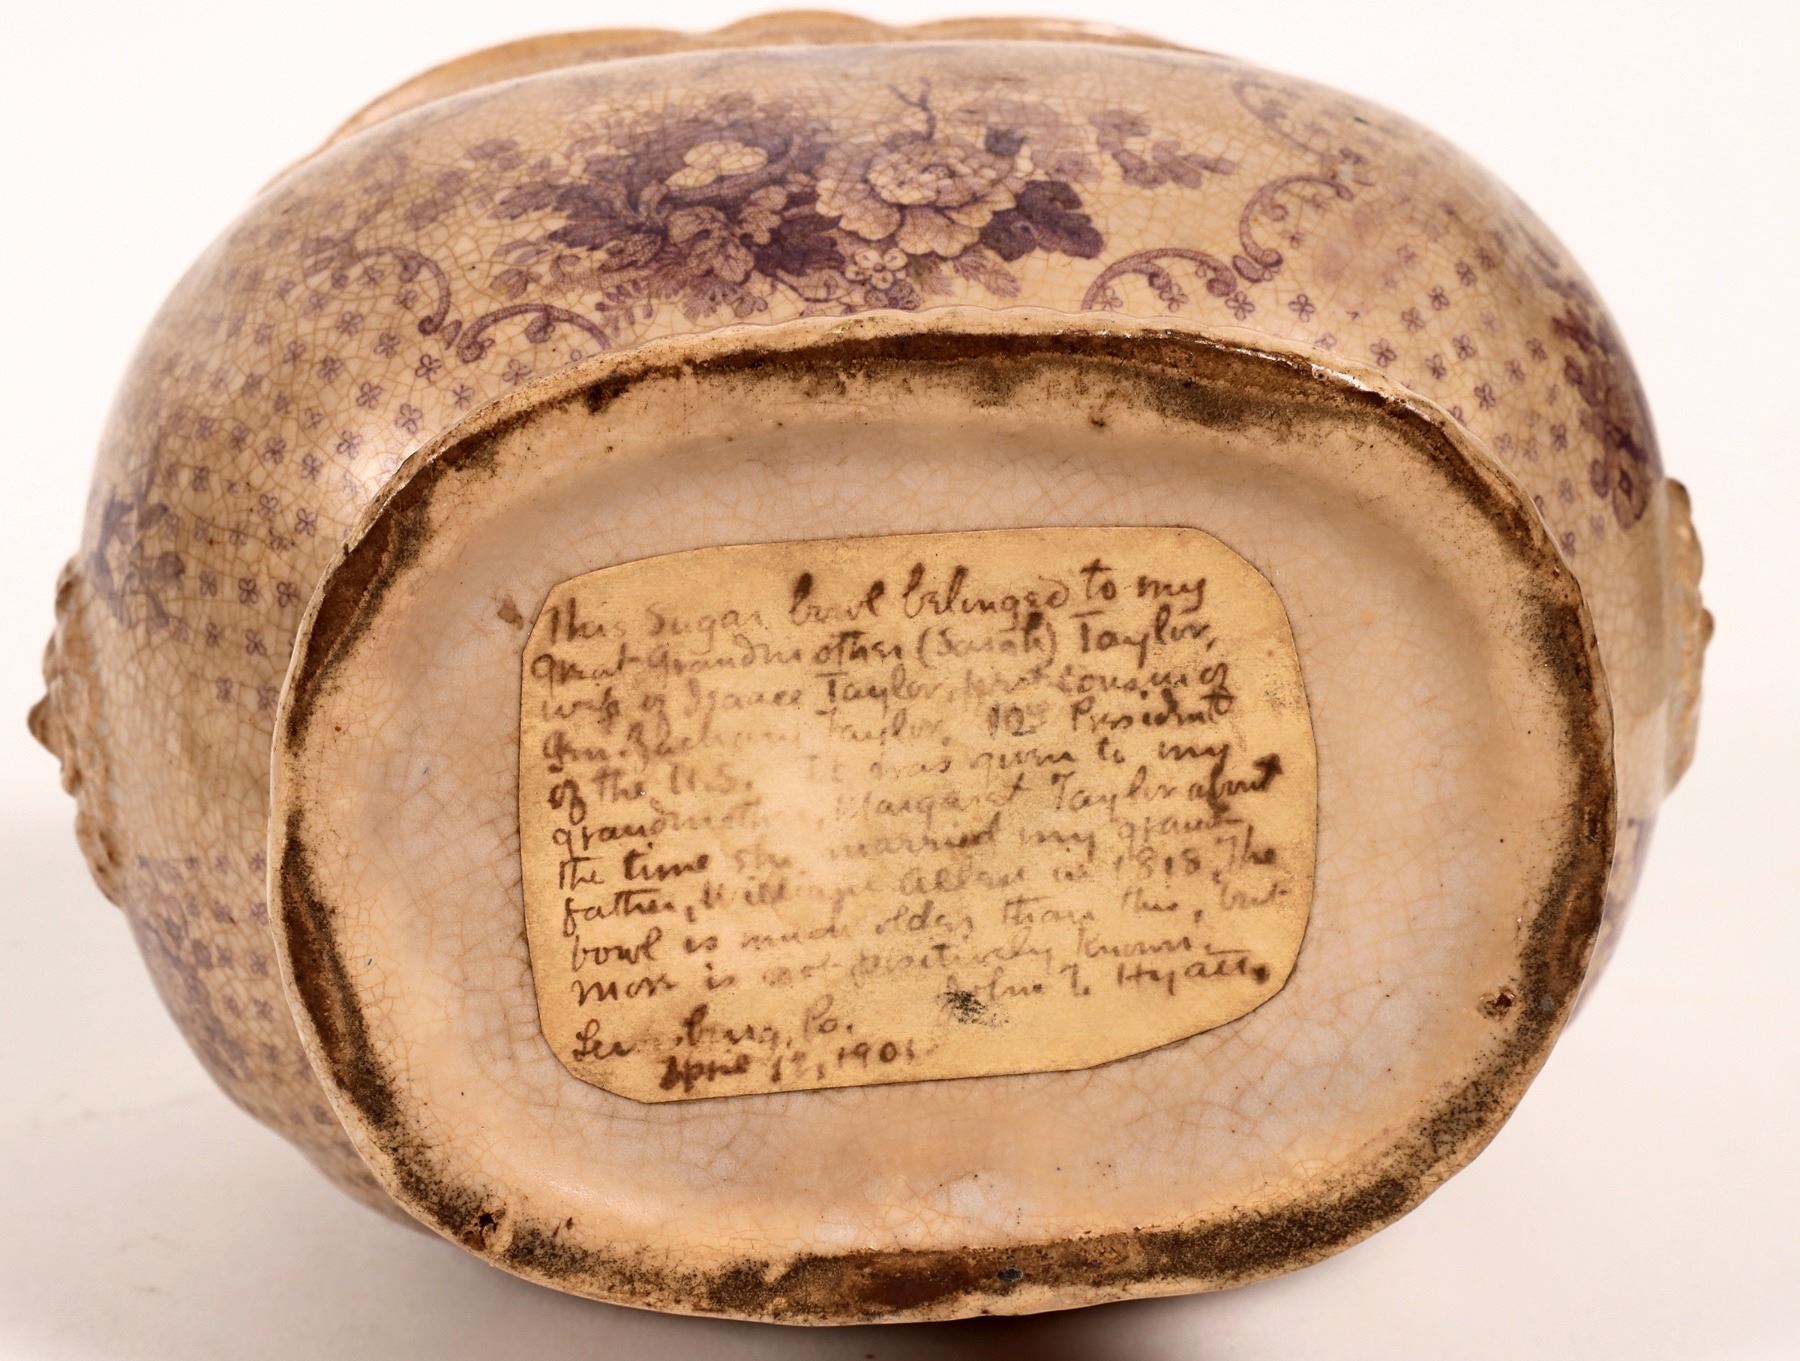 This Sugar bowl belonged to my
great-Grandmother (Sarah) Taylor,
wife of Isaace Taylor, first cousin of
Gen. Zachary Taylor, 12th President
of the U.S. It was given to my
grandmother, Margaret Taylor about
the time she married my grand-
father, William Allen in 1818. The
bowl is much older than this, but
more is not positively known.
John T. Hyatt,
Lewisburg, Pa.
April 12, 1901